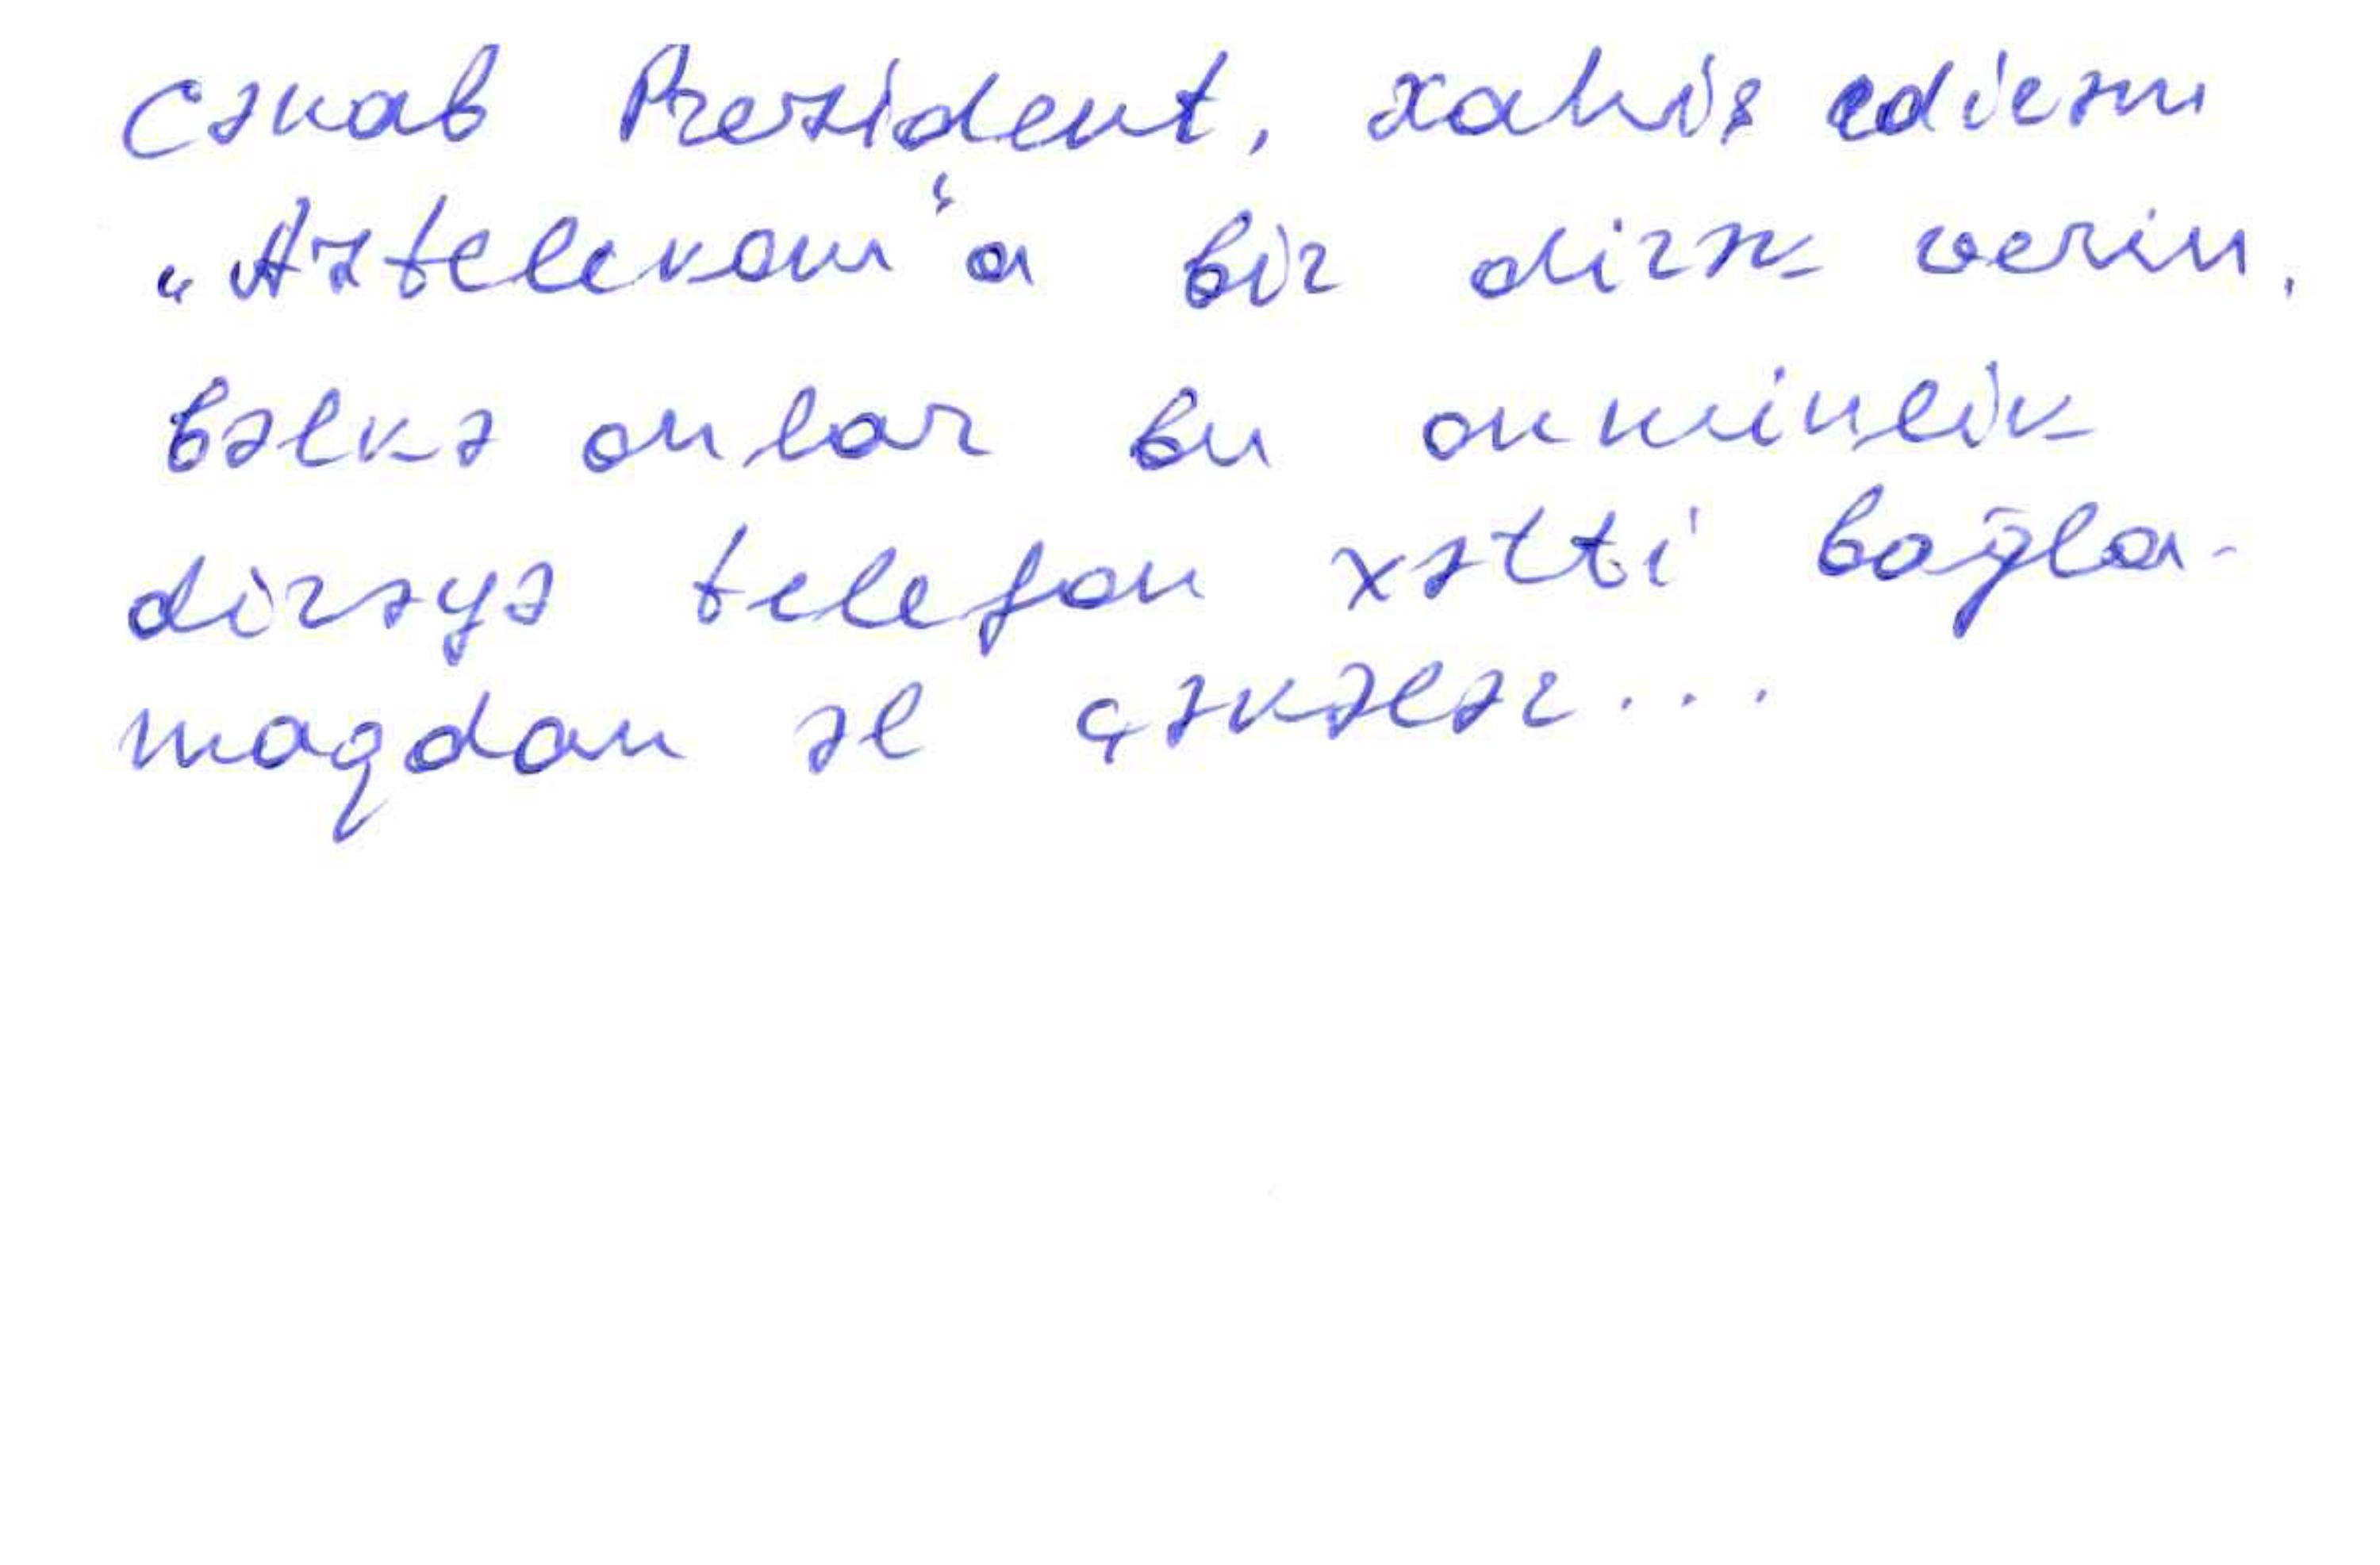 Cənab Prezident, xahiş edirəm
„Aztelekom“a bir dirək verin.
Bəlkə onlar bu onminlik
dirəyə telefon xətti bağla-
maqdan əl çəkələr...